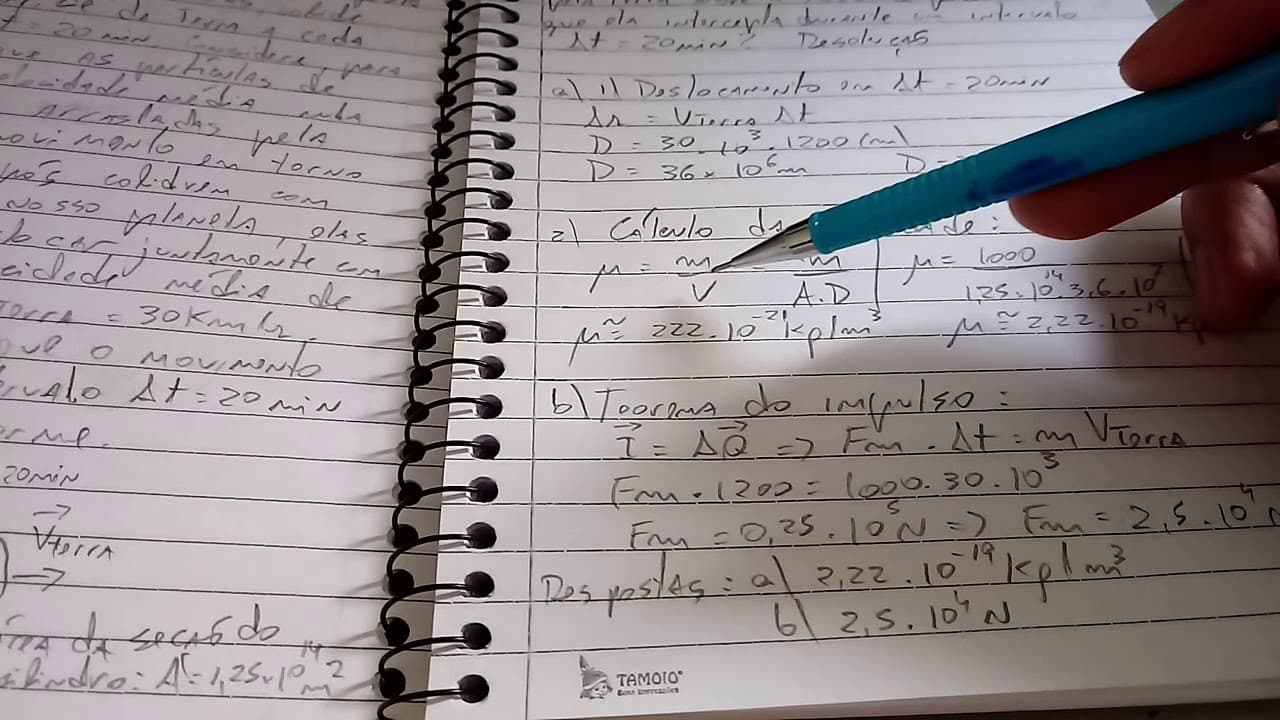 de Terra a cada
= 20 min. Considere, para
que as partículas de
velocidade média nula
arrastadas pela
movimento em torno
após colidirem com
nosso planeta, elas
juntamente com
média de
TERRA = 30 Km/s.
que o movimento
Δt = 20 min
20 min
V TERRA
da seção do
cilindro: A = 1,25 x 10^14 m^2
que ela intercepta durante um intervalo
Δt = 20 min? Resolução
a) 1) Deslocamento em Δt = 20 min
Δs = V Terra Δt
D = 30 . 10^3 . 1200 (m)
D = 36 x 10^6 m D =
2) Cálculo da
μ = m/V = m/A.D μ = 1000/1,25.10^14.3,6.10^7
μ ≅ 222.10^-21 kg/m^3 μ ≅ 2,22.10^-19
b) Teorema do impulso:
I = ΔQ => Fm . Δt = m V Terra
Fm . 1200 = 1000 . 30 . 10^3
Fm = 0,25 . 10^5 N => Fm = 2,5 . 10^4 N
Respostas: a) 2,22 . 10^-19 kg/m^3
b) 2,5 . 10^4 N
TAMOIO